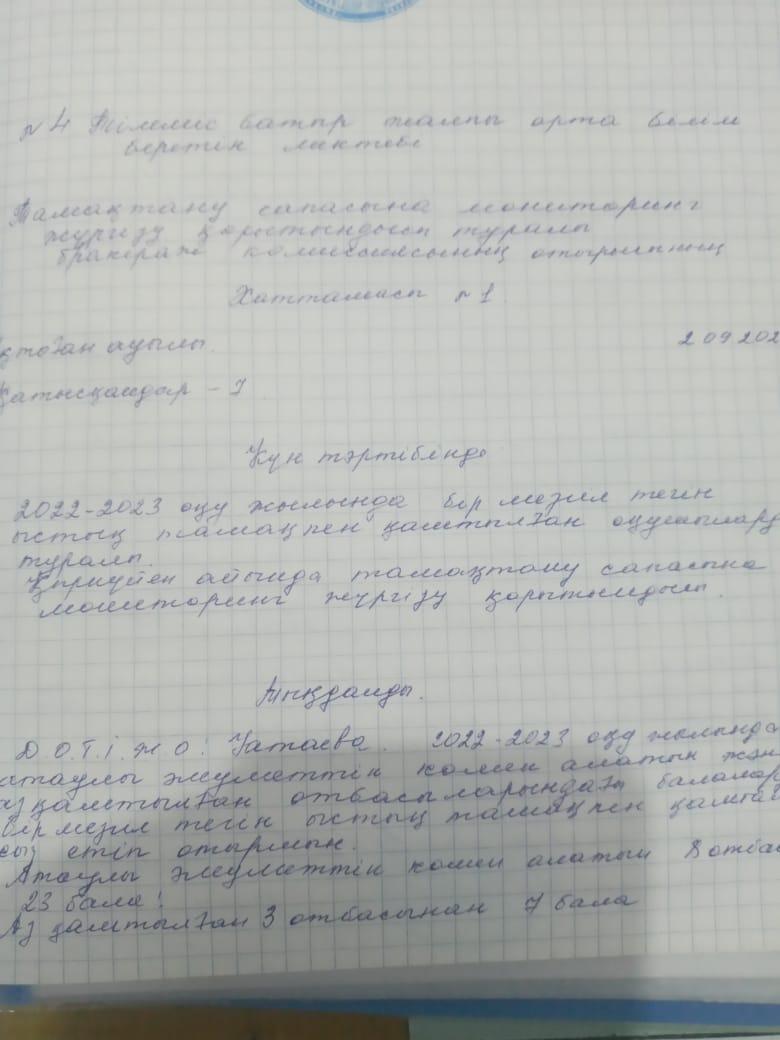 №4 Тілеміс батыр жалпы орта білім
беретін мектебі
Тамақтану сапасына мониторинг
жүргізу қорытындысы туралы
бракераж комиссиясының отырысының
Хаттамасы №1.
қтоған ауылы.
2 09 202
Қатысқандар - 7
Күн тәртібінде
2022-2023 оқу жылында бір мезгіл тегін
ыстық тамақпен қамтылған оқушылард
туралы
Қыркүйек айында тамақтану сапасына
мониторинг жүргізу қорытындысы.
Тыңдалды.
Д О.Т.І.Ж О: 2022-2023 оқу жылында
атаулы әлуметтік көмек алатын жән
аз қамтылған отбасыларындағы балалар
бір мезгіл тегін ыстық тамақпен қамта
сыз етіп отырмын.
Атаулы әлуметтік көмек алатын 8 отба
23 бала!
Аз қамтылған 3 отбасынан 7 бала